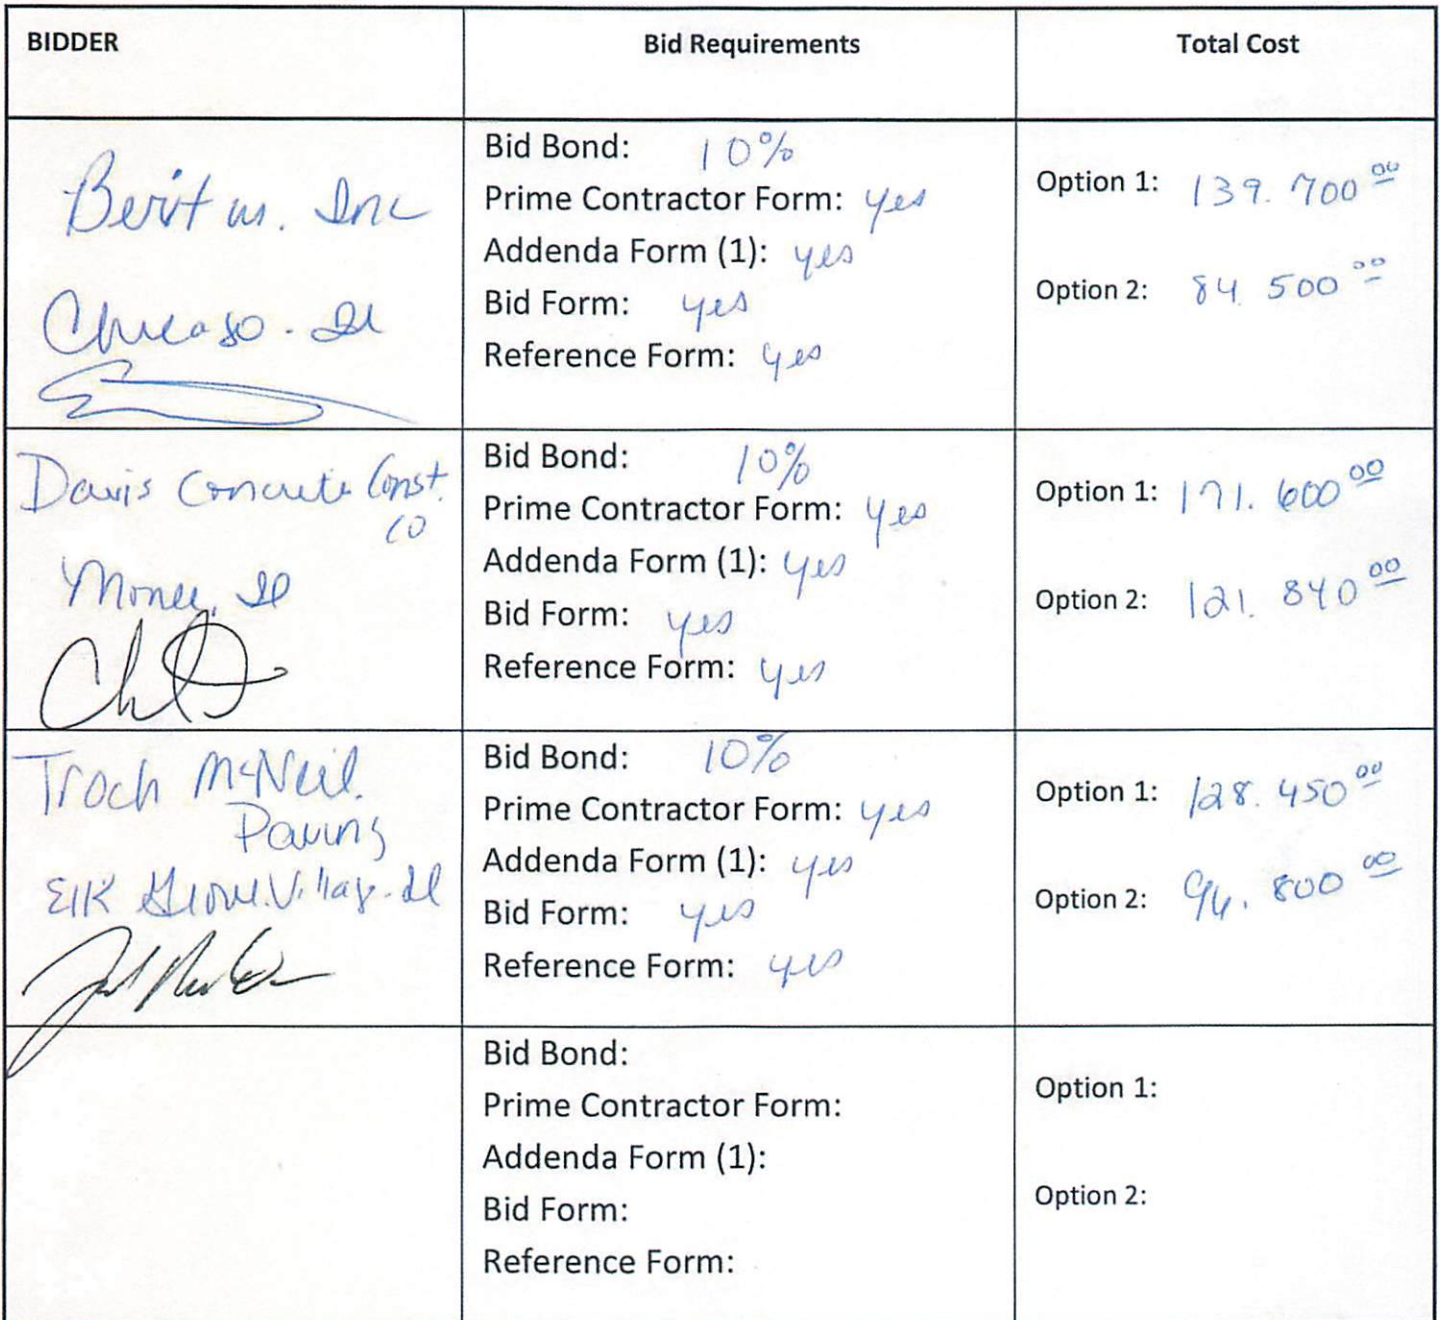 BIDDER Bid Requirements Total Cost
Inc
Chicago. Il
Bid Bond: 10%
Prime Contractor Form: yes
Addenda Form (1): yes
Bid Form: yes
Reference Form: yes
Option 1: 139. 700 00
Option 2: 84 500 00
Davis Concrete Const.
Co
Monee, Il
Bid Bond: 10%
Prime Contractor Form: yes
Addenda Form (1): yes
Bid Form: yes
Reference Form: yes
Option 1: 171. 600 00
Option 2: 121. 840 00
Troch McNeil
Paving
Elk Grove Village. Il
Bid Bond: 10%
Prime Contractor Form: yes
Addenda Form (1): yes
Bid Form: yes
Reference Form: yes
Option 1: 128. 450 00
Option 2: 800 00
Bid Bond:
Prime Contractor Form:
Addenda Form (1):
Bid Form:
Reference Form:
Option 1:
Option 2: